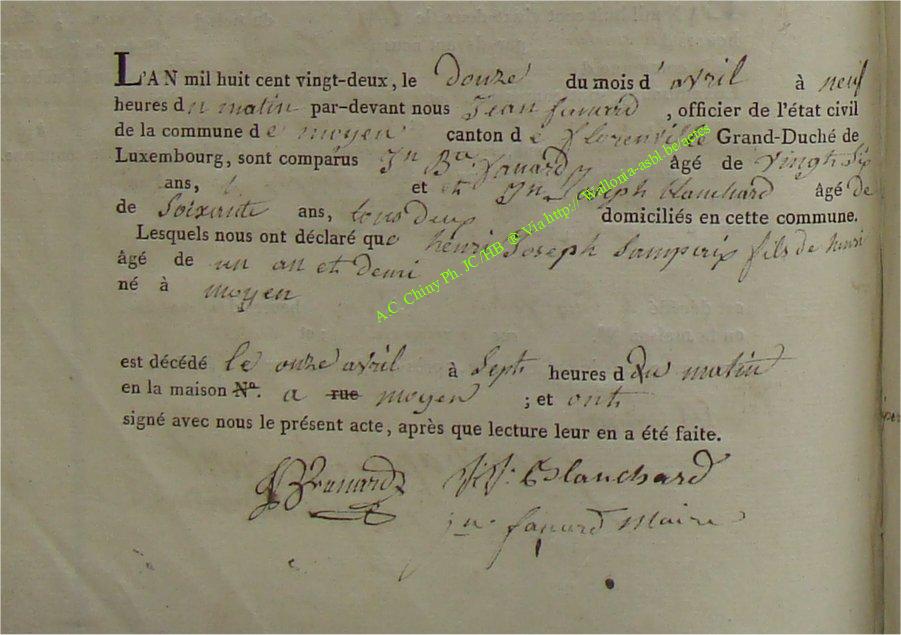 L'AN mil huit cent vingt-deux, le douze du mois d'avril à neuf
heures du matin par-devant nous Jean fanard , officier de l'état civil
de la commune de moyen canton de florenville Grand-Duché de
Luxembourg, sont comparus Jn Bte fanard âgé de vingt six
ans, et et Jn Joseph blanchard âgé de
de Soixante ans, tous deux domiciliés en cette commune.
Lesquels nous ont déclaré que henri Joseph Lamperix fils de henri
âgé de un an et demi
né à moyen
A.C. Chiny Ph. JC/HB @ Via http://Wallonia-asbl.be/actes
est décédé le onze avril à Sept heures du matin
en la maison N°. a rue moyen ; et ont
signé avec nous le présent acte, après que lecture leur en a été faite.
JB fanard Blanchard
jn fanard Maire